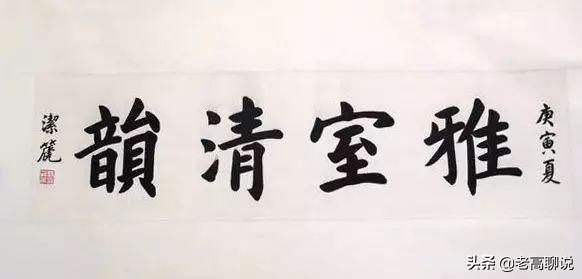 庚寅夏
雅室清韻
潔篪
头条 @老高聊说